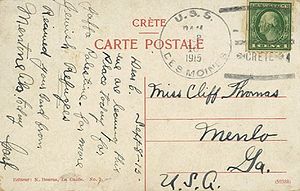 CRÈTE
CARTE POSTALE
U.S.S.
DES MOINES
1915
CRETE
1 CENT 1
Sept 8-15
we are leaving this
place today for
Jaffa Palestine for more
Jewish Refugees
Received your card from
Mentone
today
Miss Cliff Thomas
Menlo
Ga.
U.S.A.
Editeur: N.
La Canée. No.